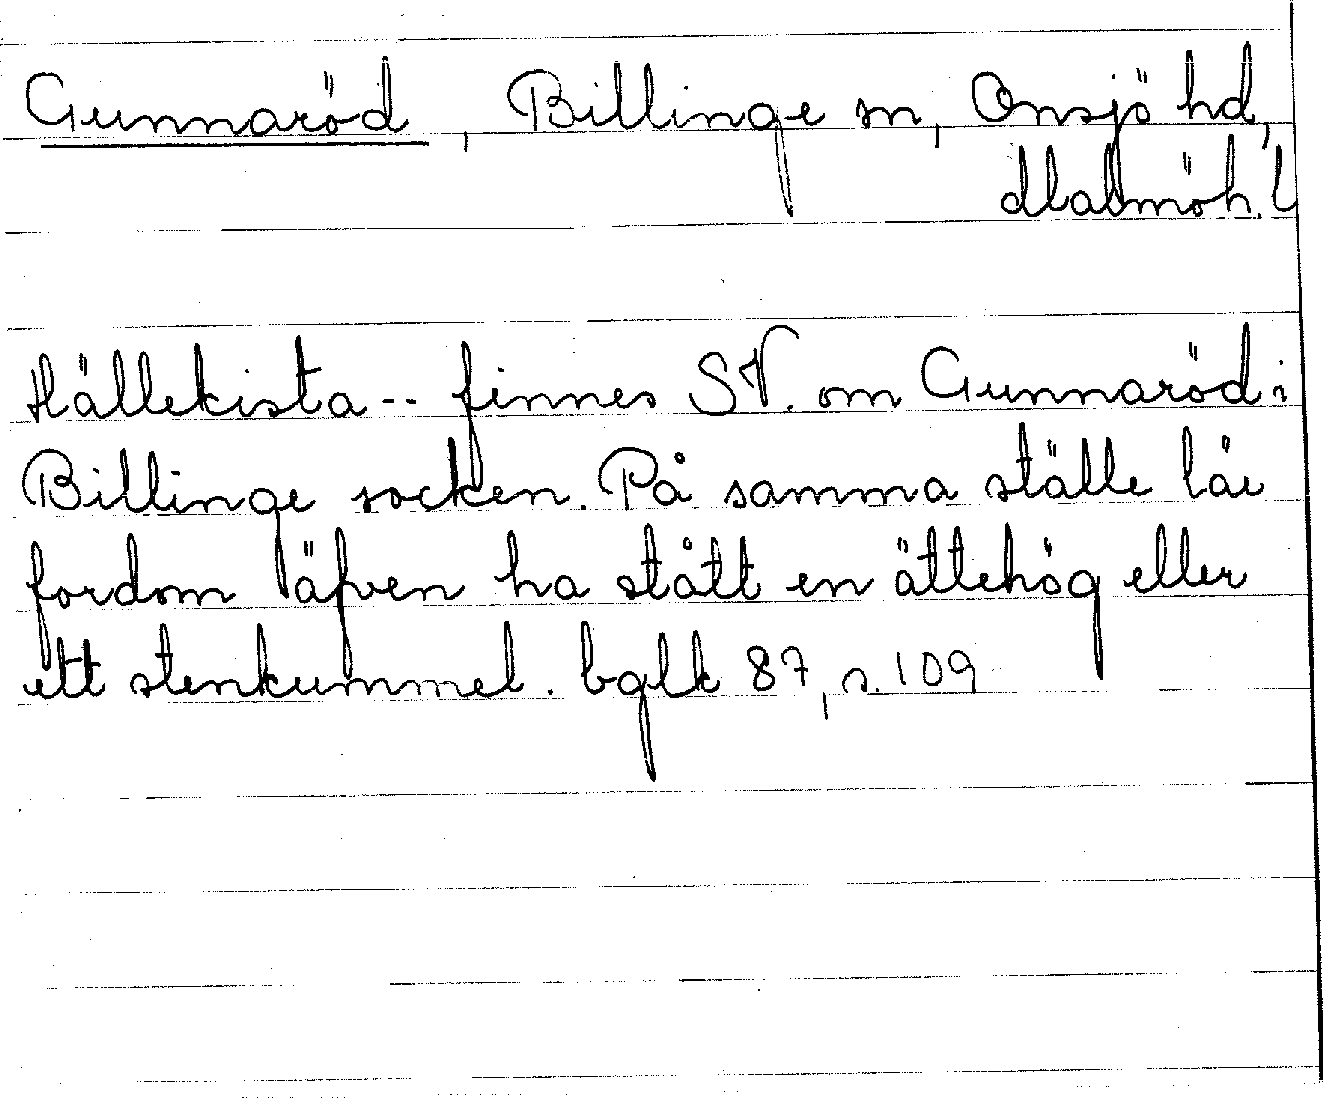 Gunnaröd, Billinge sn, Onsjö hd,
Malmöh. l
Hällekista -- finnes SV. om Gunnaröd i
Billinge socken. På samma ställe lär
fordom äfven ha stått en ättehög eller
ett stenkummel. bglk 87, s. 109